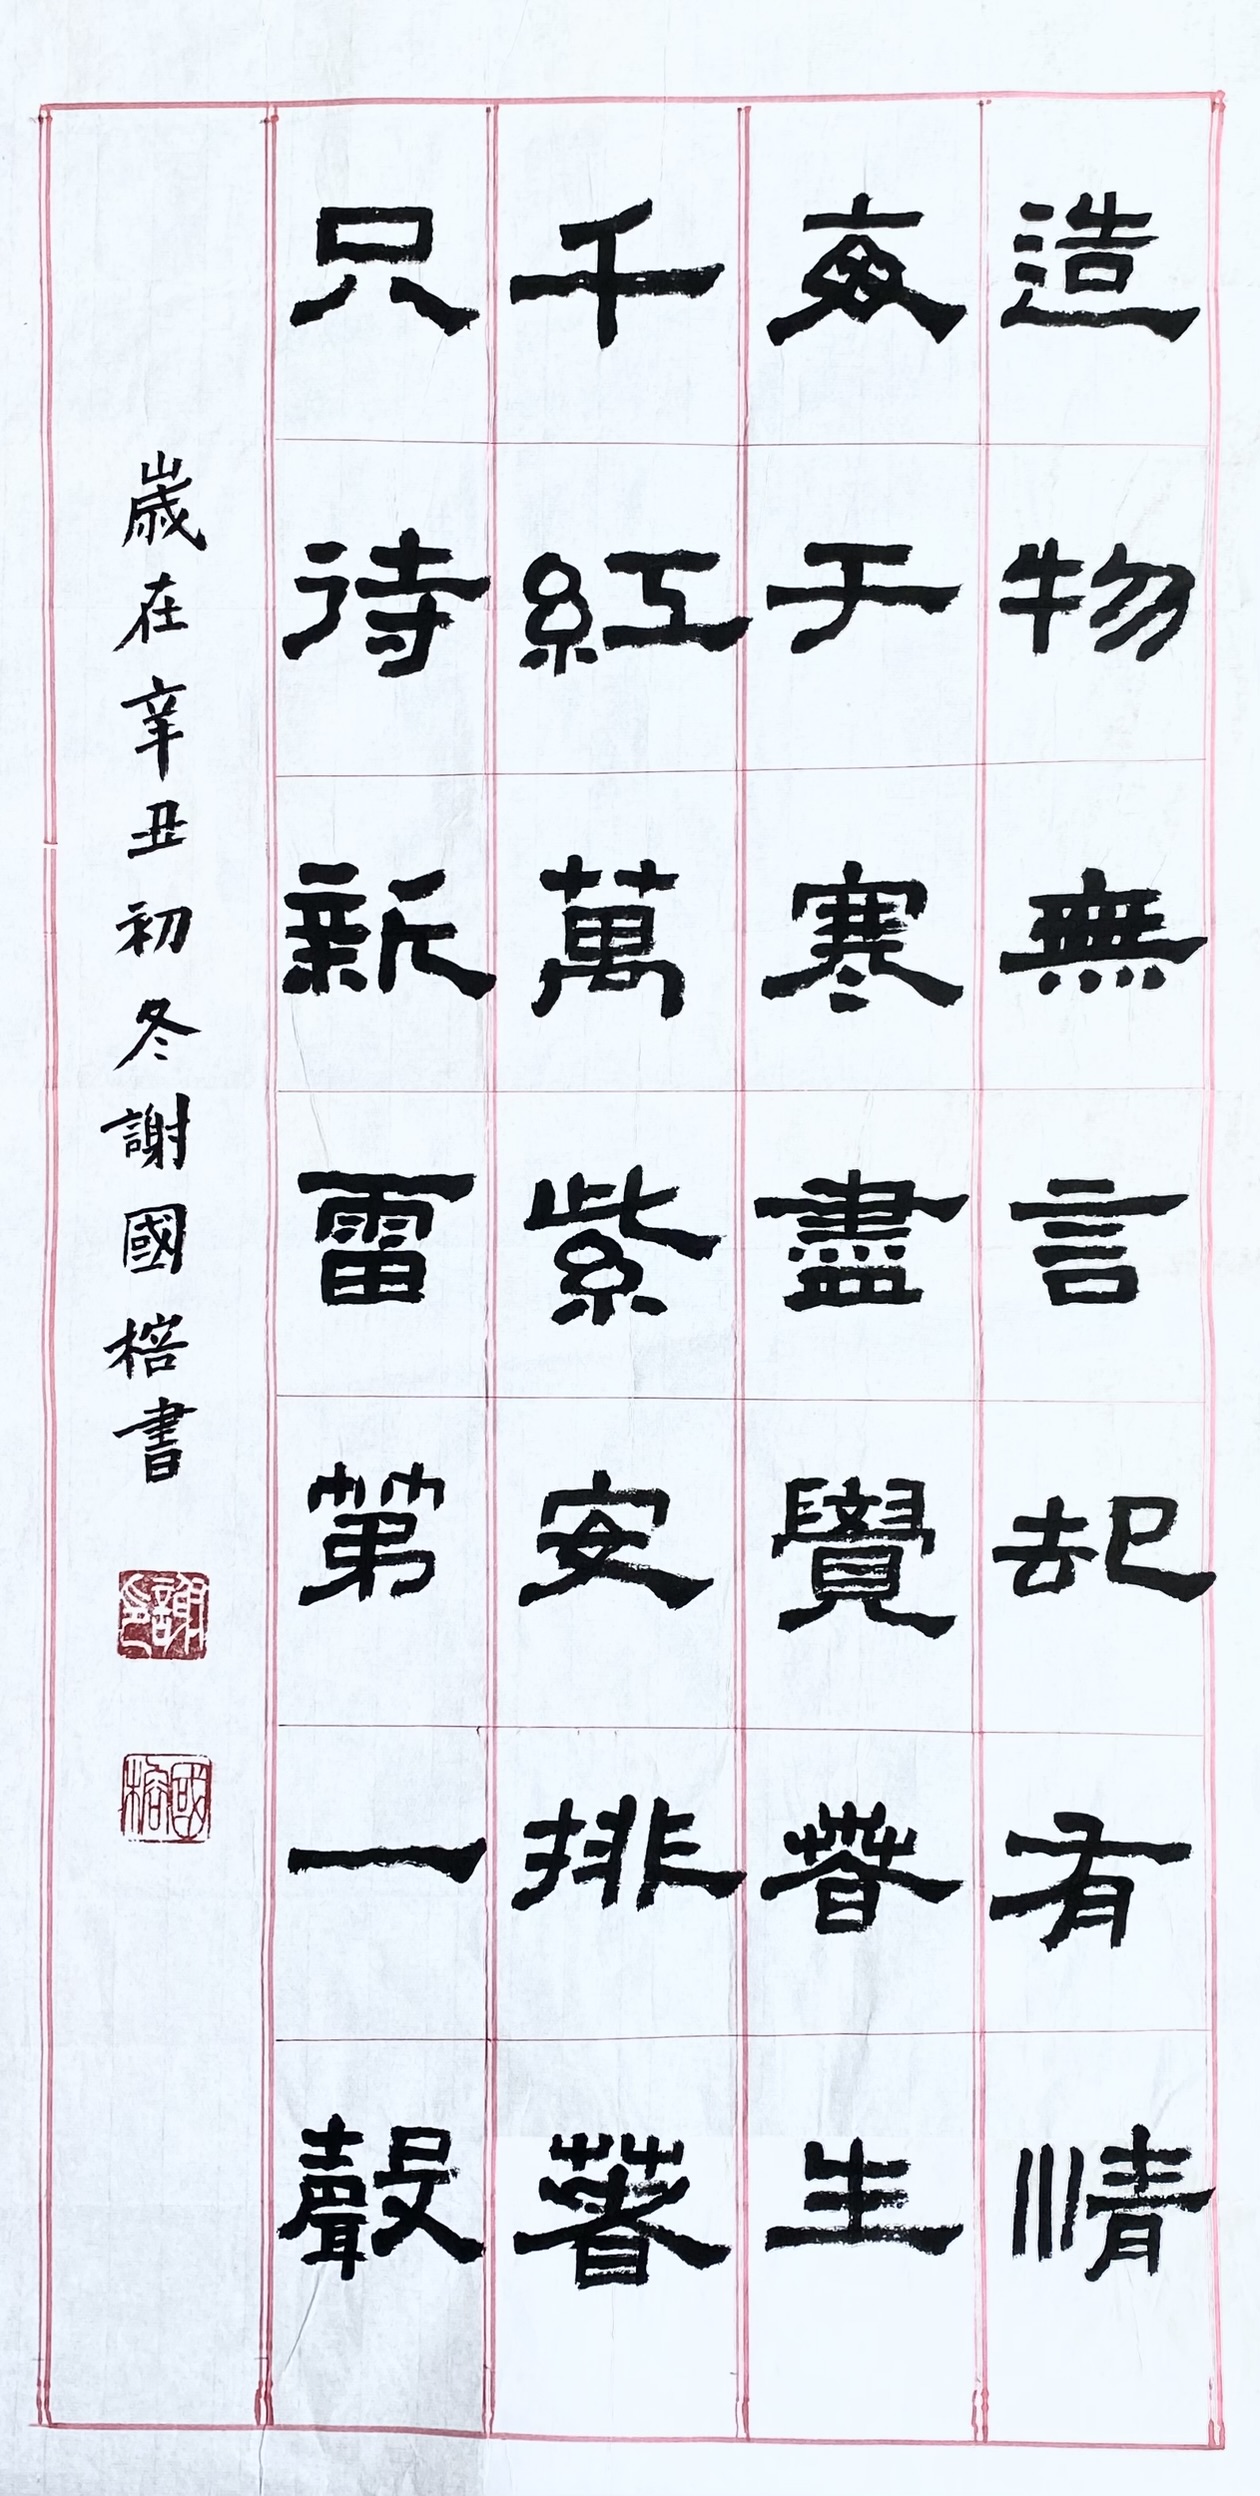 造物無言却有情
每于寒盡覺春生
千紅萬紫安排著
只待新雷第一聲
歲在辛丑初冬謝國榕書
謝印
國榕